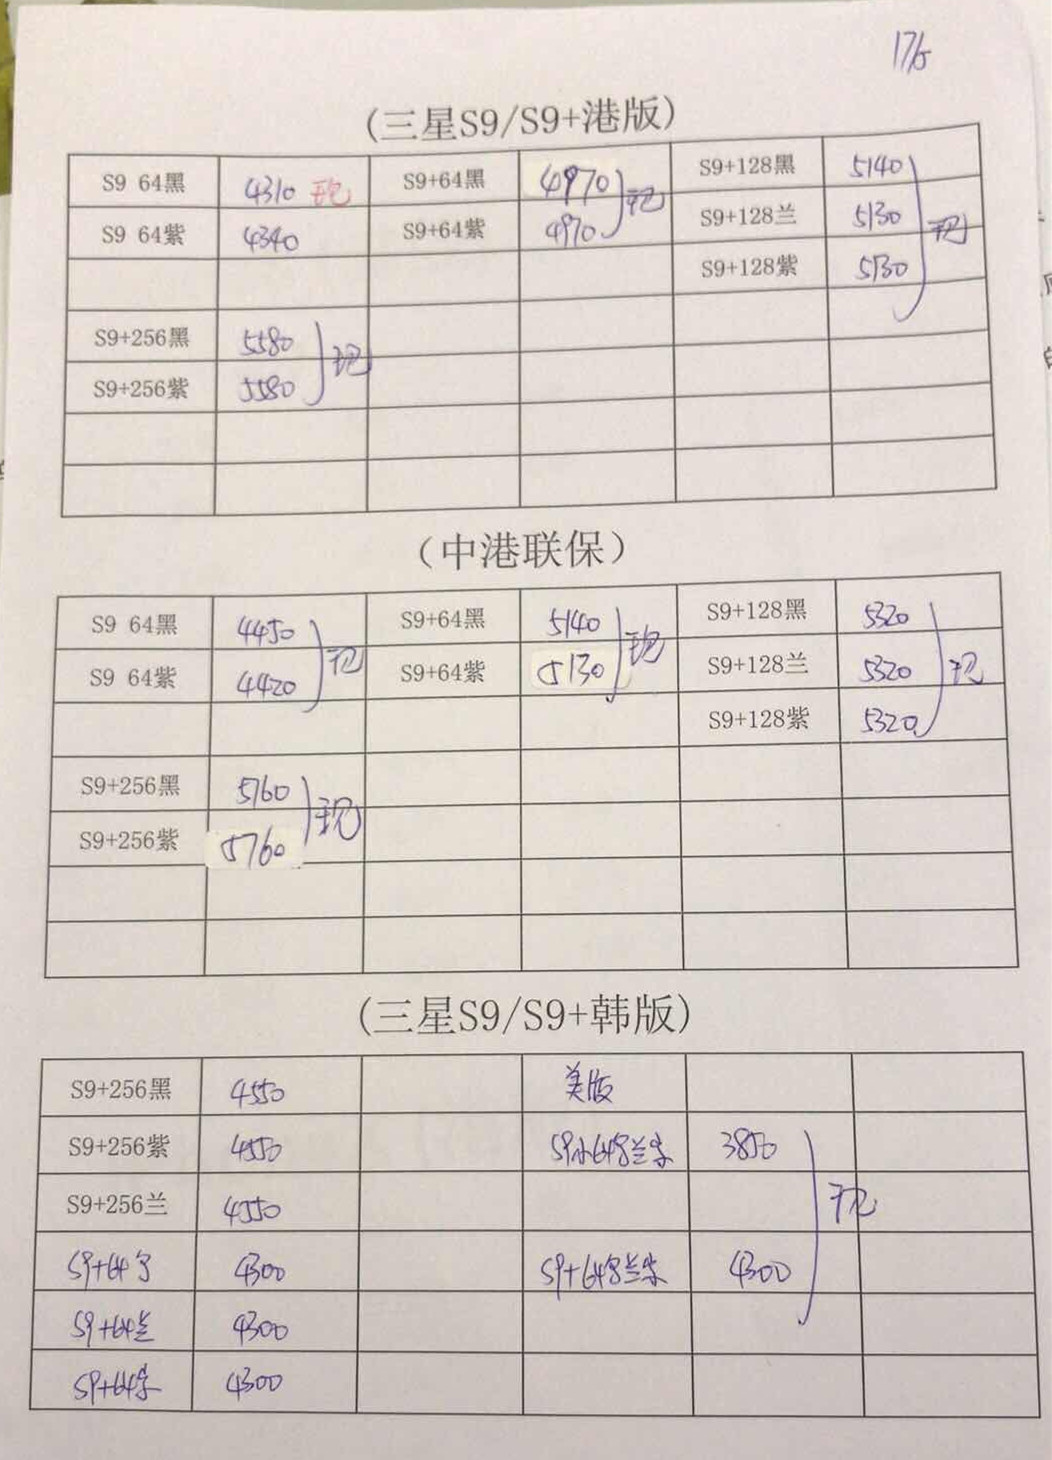 17/5
(三星S9/S9+港版)
S9 64黑 4310 现 S9+64黑 4970 现 S9+128黑 5140
S9 64紫 4340 S9+64紫 4970 S9+128兰 5130 现
S9+128紫 5130
S9+256黑 5580 现
S9+256紫 5580
（中港联保）
S9 64黑 4450 现 S9+64黑 5140 现 S9+128黑 5320
S9 64紫 4420 S9+64紫 5130 S9+128兰 5320 现
S9+128紫 5320
S9+256黑 5760 现
S9+256紫 5760
(三星S9/S9+韩版)
S9+256黑 4550 美版
S9+256紫 4550 3850
S9+256兰 4550 现
S9+64 4300 S9+64 4300
S9+64兰 4300
S9+64 4300